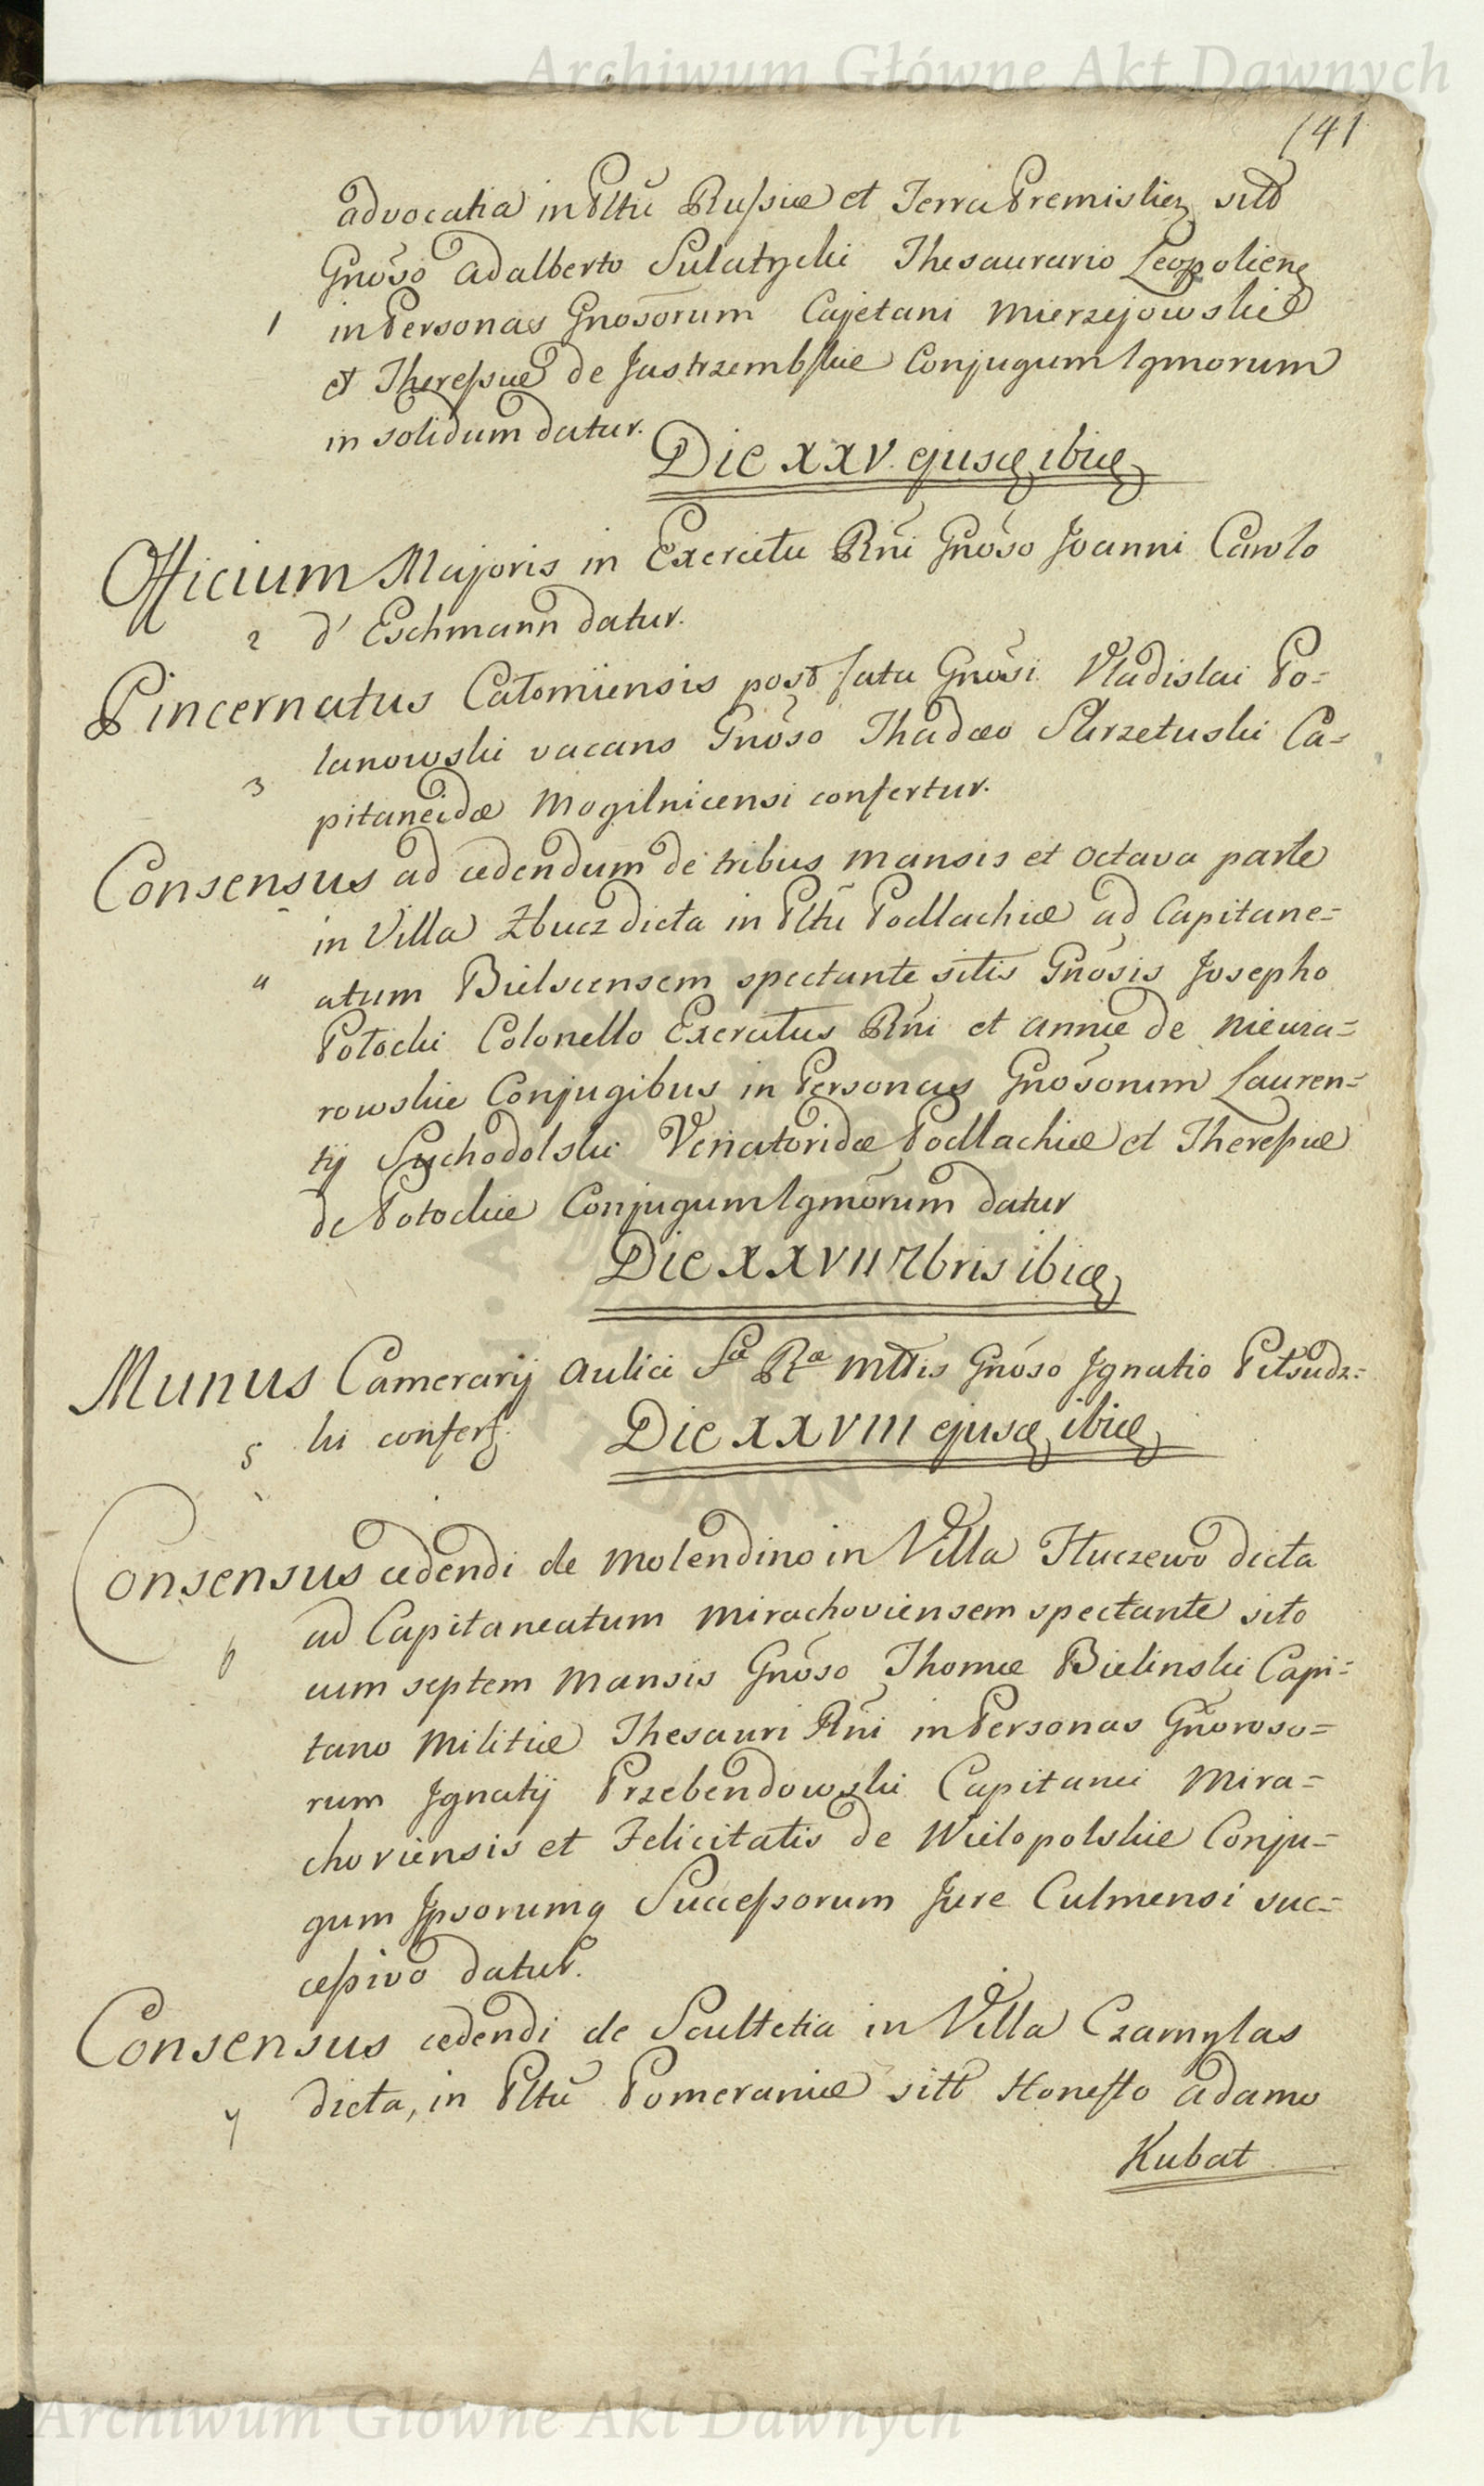 Archiwum Główne Akt Dawnych
141
advocatia in Pltũ Russiæ et Terra Premislien sito
Gnõso Adalberto Sulatycki Thesaurario Leopolien
1 in Personas Gnosõrum Cajetani Mierzejowskie
et Theressiæ de Jastrzembskie Conjugum Igmorum
in solidum datur.
Die XXV. ejusd ibid
Officium Majoris in Exercitu Rñi Gnõso Joanni Carolo
2 d'Eschmann datur.
Pincernatus Calomiensis post fata Gnõsi Vladislai Po=
lanowski vacans Gnõso Thadæo Skrzetuski Ca=
3 pitaneidæ Mogilnicensi confertur.
Consensus ad cedendum de tribus mansis et octava parte
in Villa Zbucz dicta in Pltũ Podlachiæ ad Capitane=
4 atum Bielscensem spectante sitis Gnõsis Josepho
Potocki Colonello Exercitus Rñi et Annæ de Niewia=
rowskie Conjugibus in Personas Gnosõrum Lauren=
tij Suchodolski Venatoridæ Podlachiæ et Theressiæ
de Potockie Conjugum Igmõrum datur
Die XXVII 7bris ibid
Munus Camerarij Aulici Sæ Ræ Mttis Gnõso Ignatio Pilsudz=
5 ki confert.
Die XXVIII ejusd ibid
Consensus cedendi de Molendino in Villa Tluczewo dicta
ad Capitaneatum Mirachoviensem spectante sito
6 cum septem Mansis Gnõso Thomæ Bielinski Capi=
tano Militiæ Thesauri Rñi in Personas Gñoroso=
rum Ignatij Przebendowski Capitanei Mira=
choviensis et Felicitatis de Wielopolskie Conju=
gum Ipsorumq Successorum Jure Culmensi suc=
cessivo datur.
Consensus cedendi de Scultetia in Villa Czarnylas
7 dicta, in Pltũ Pomeraniæ sitt Honesto Adamo
Kubat
Archiwum Główne Akt Dawnych